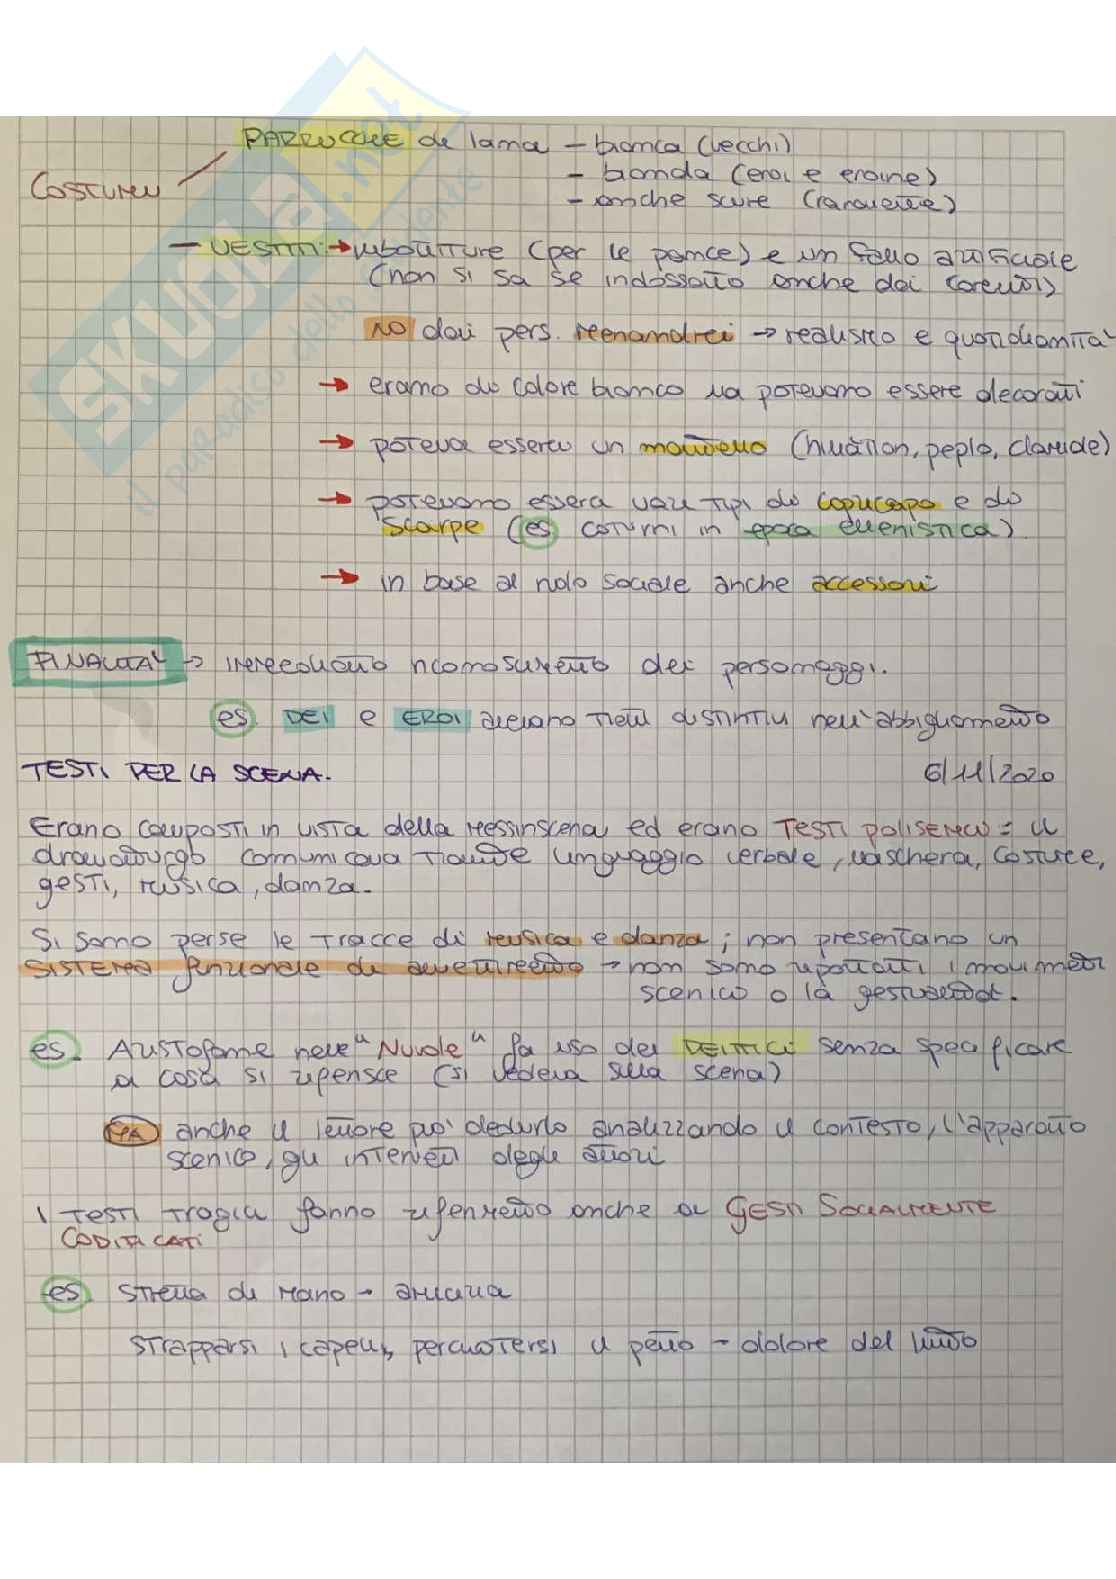 PARRUCCHE di lana - bianca (vecchi)
COSTUMI
- bionda (eroi e eroine)
- anche scure
- VESTITI → imbottiture (per le pance) e un fallo artificiale
(non si sa se indossato anche dai coreuti)
NO dai pers. menandrei → realismo e quotidianità
→ erano di colore bianco ma potevano essere decorati
→ poteva esserci un mantello (himàtion, peplo, clamide)
→ potevano esserci vari tipi di copricapo e di
scarpe (es coturni in epoca ellenistica)
→ in base al ruolo sociale anche accessori
FINALITA' → immediato riconoscimento dei personaggi.
es. DEI e EROI avevano tratti distintivi nell'abbigliamento
TESTI PER LA SCENA. 6/11/2020
Erano composti in vista della messinscena ed erano TESTI POLISEMICI = il
drammaturgo comunicava tramite linguaggio verbale, maschera, costume,
gesti, musica, danza.
Si sono perse le tracce di musica e danza; non presentano un
SISTEMA funzionale di → non sono riportati i movimenti
scenici o la gestualità.
es. Aristofane nelle "Nuvole" fa uso dei DEITTICI senza specificare
a cosa si riferisce (si vedeva sulla scena)
MA anche il lettore può dedurlo analizzando il contesto, l'apparato
scenico, gli interventi degli attori
I TESTI TRAGICI fanno riferimento anche a GESTI SOCIALMENTE
CODIFICATI
es. stretta di mano - amicizia
strapparsi i capelli, percuotersi il petto - dolore del lutto
SKUOLA.net
il paradiso dello studente